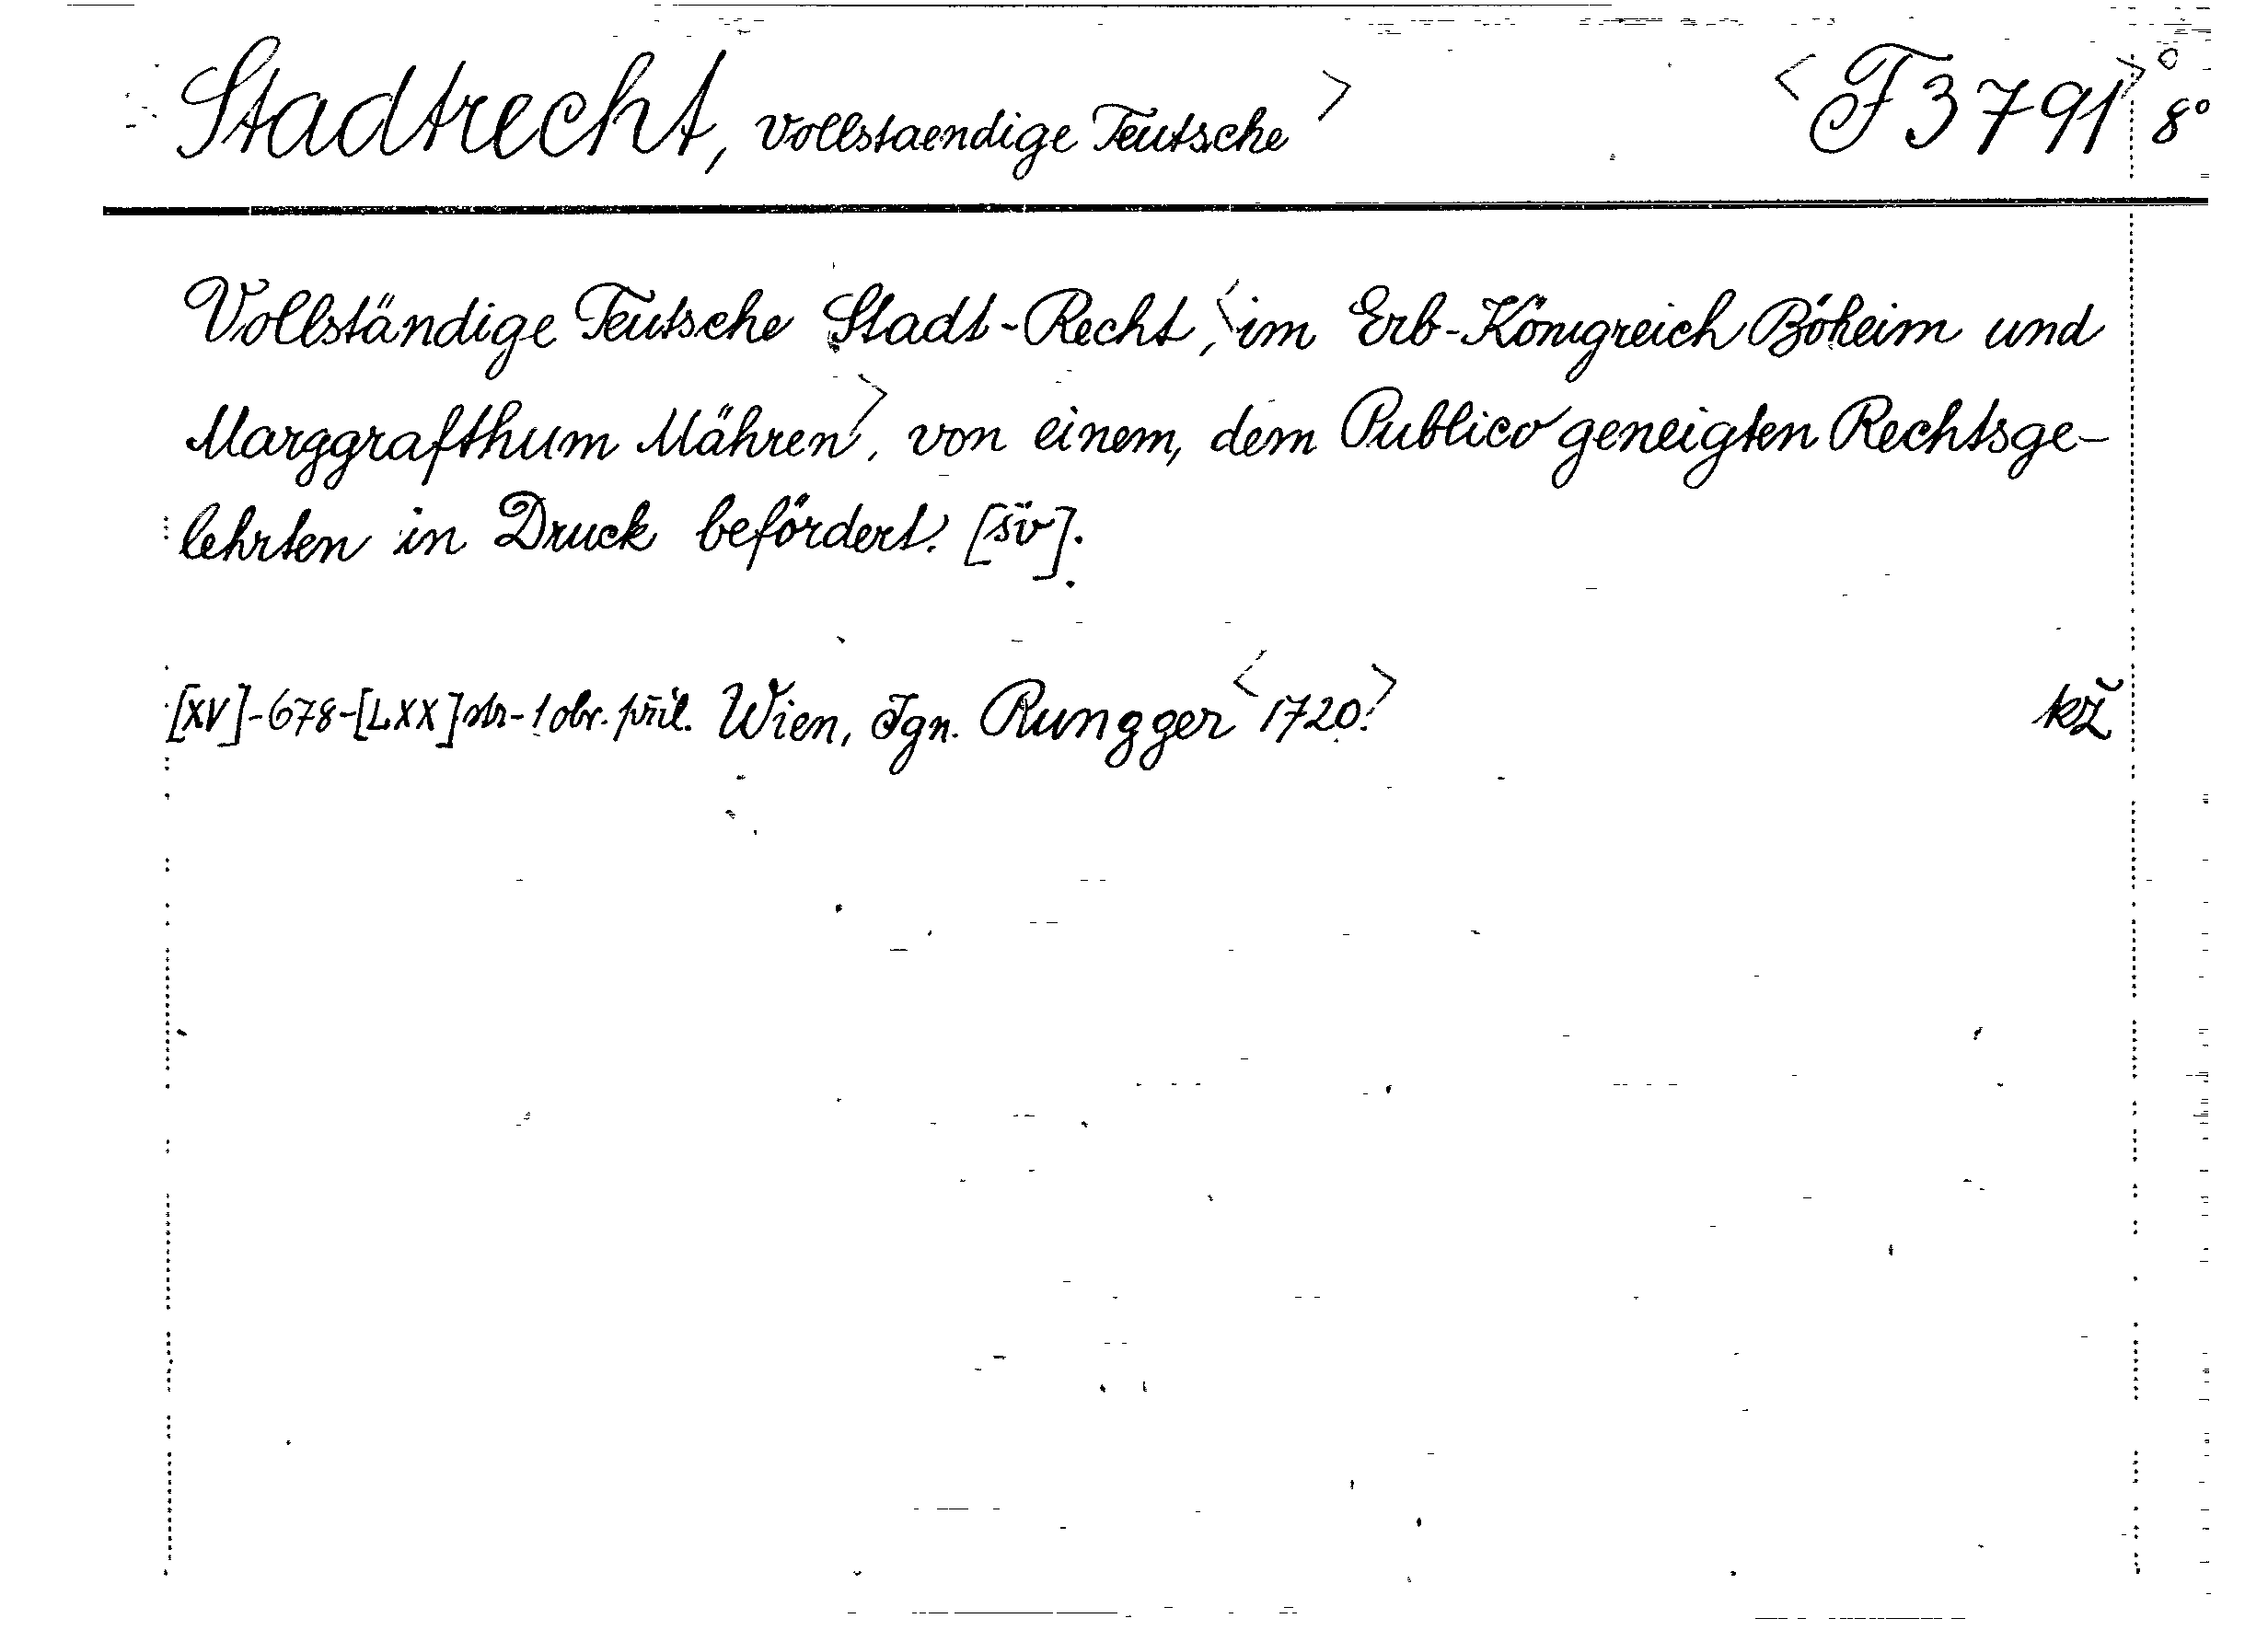 Stadtrecht, vollstaendige Teutsche > <F 3791> 8°
Vollständige Teutsche Stadt-Recht, <im Erb-Königreich Böheim und
Marggrafthum Mähren>, von einem, dem Publico geneigten Rechtsge-
lehrten in Druck befördert. [sv].
[XV]-678-[LXX] str-1 obr. příl. Wien, Ign. Rungger <1720.> kž